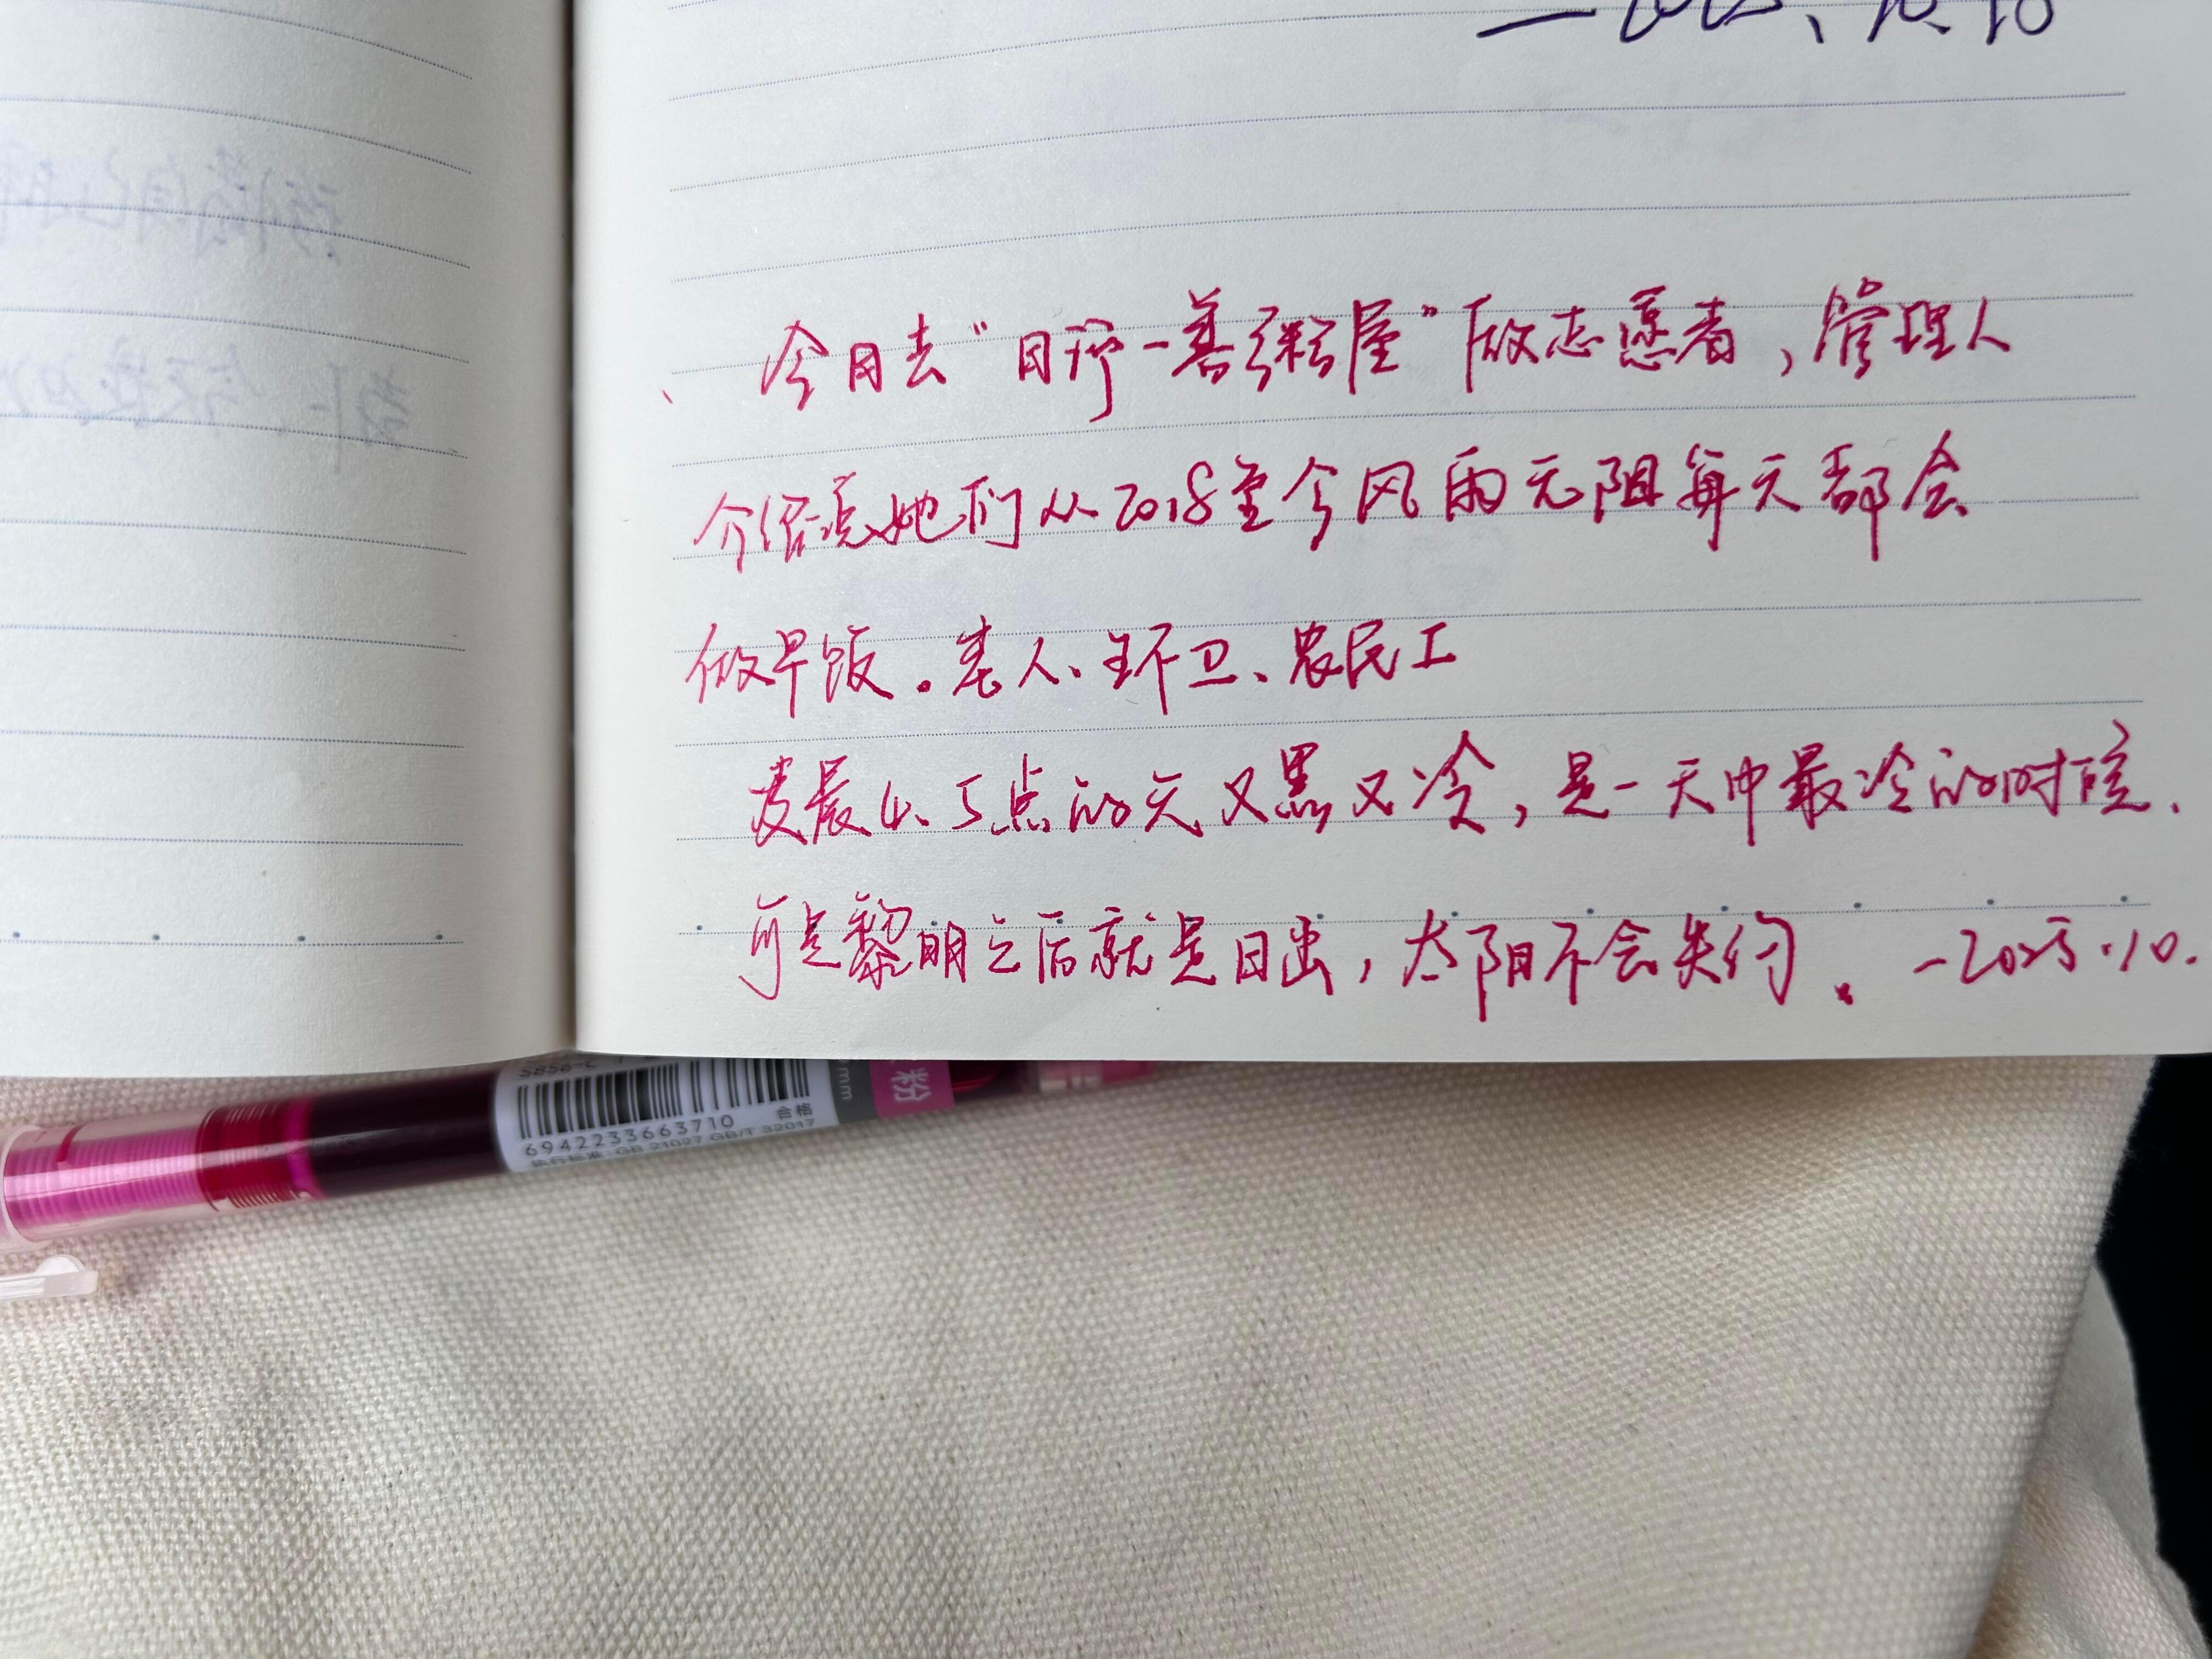 今日去“日行一善粥屋”做志愿者,管理人
介绍说她们从2018至今风雨无阻每天都会
做早饭。老人、环卫、农民工
凌晨4、5点的天又黑又冷,是一天中最冷的时候、
可是黎明之后就是日出,太阳不会失约。—2025.10.
粉
mm
合格
6942233663710
执行标准:GB 21027 GB/T 32017